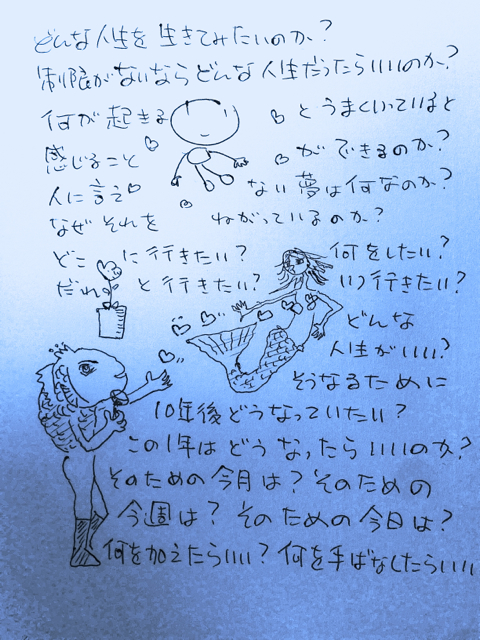 どんな人生を生きてみたいのか?
制限がないならどんな人生だったらいいのか?
何が起きる とうまくいっていると
感じること ができるのか?
人に言え ない夢は何なのか?
なぜそれを ねがっているのか?
どこ に行きたい? 何をしたい?
だれ と行きたい? いつ行きたい?
どんな
人生がいい?
そうなるために
10年後どうなっていたい?
この1年はどうなったらいいのか?
そのための今月は?そのための
今週は?そのための今日は?
何を加えたらいい?何を手ばなしたらいい